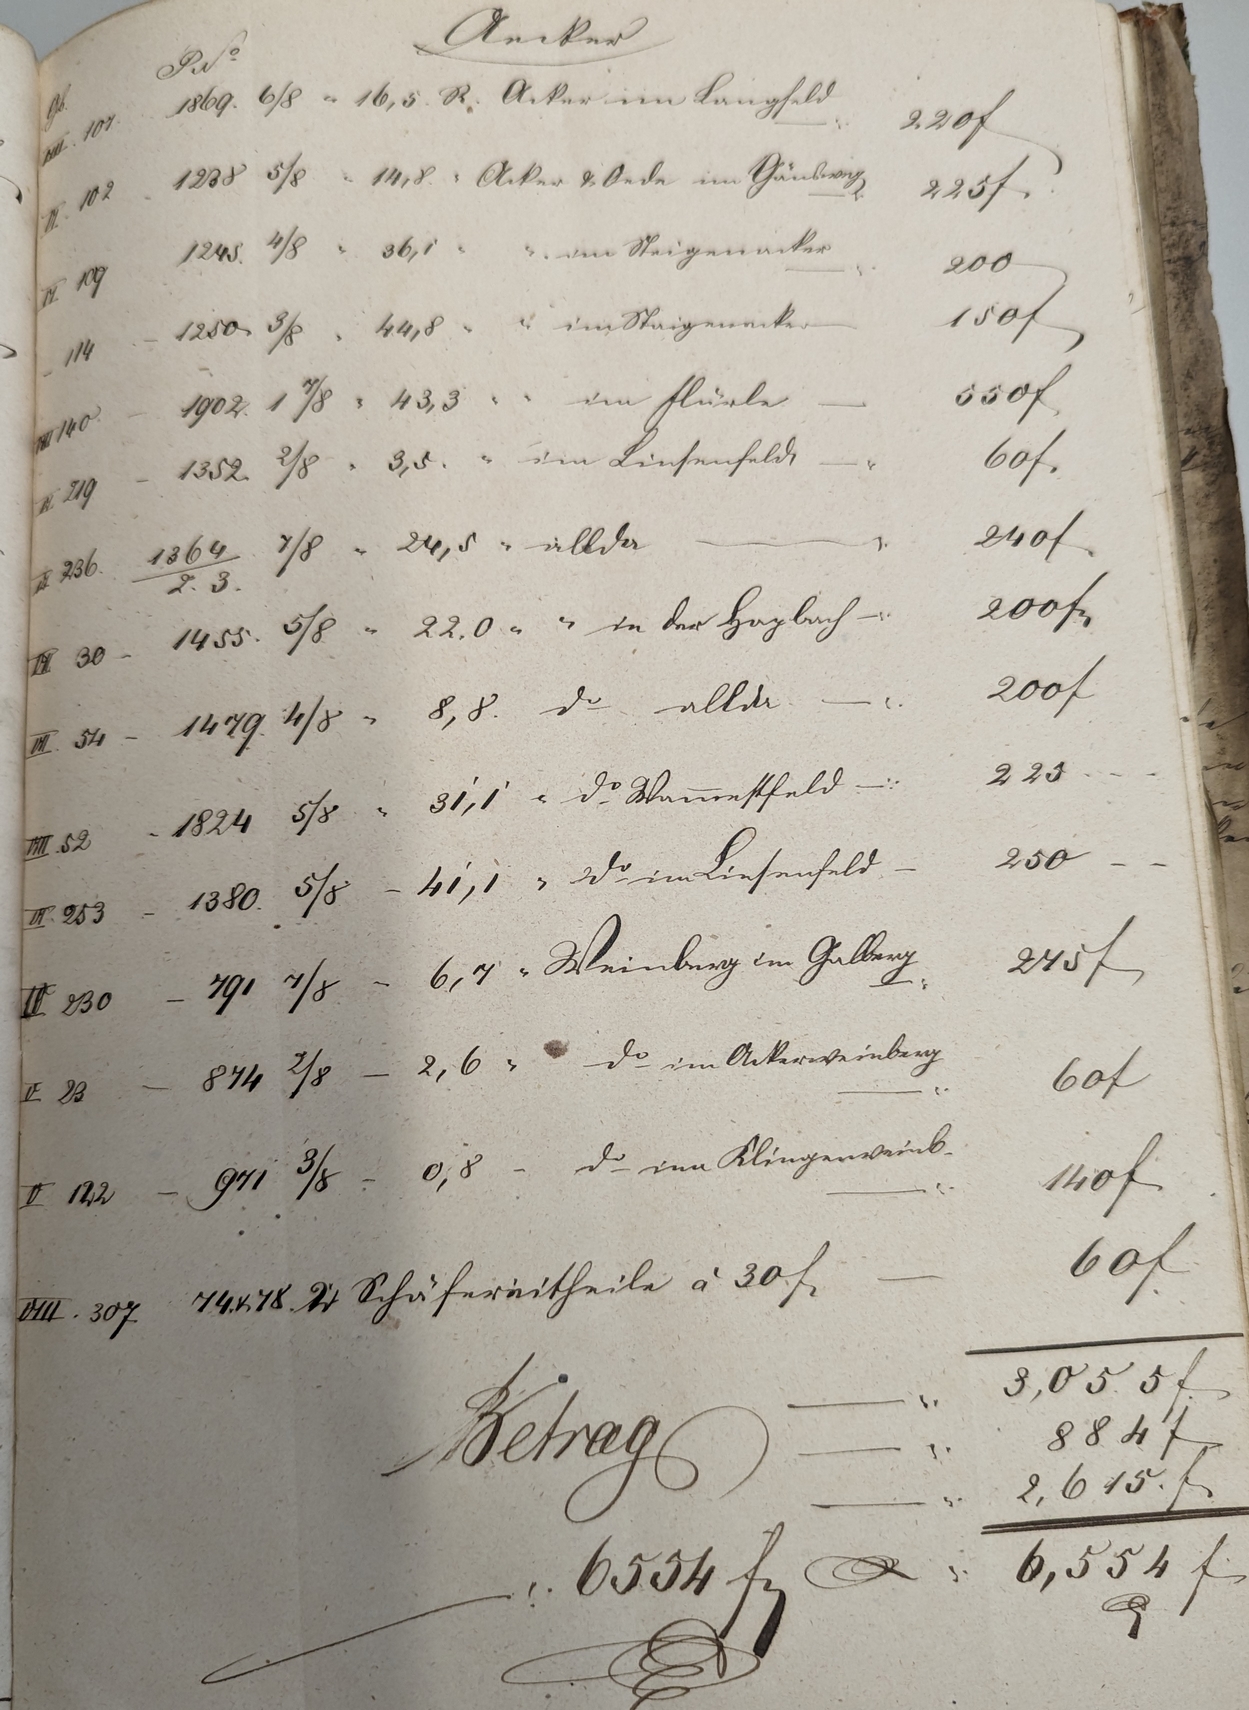 Aecker
Gb. PNo
VIII. 107. 1869. 6/8 " 16,5. R. Acker im Langfeld 220f
VI. 102 1238 5/8 " 14,8. " Acker & Oede im Gänsweg 225f.
VI 109 1245. 4/8 " 36,1 " " im Steigenacker 200
- 114 - 1250. 3/8 " 44,8 " " im Staigenacker 150f
VIII 140 - 1902. 1 7/8 " 43,3 " " im Flürle 550f
VI 219 - 1352. 2/8 " 3,5. " im Linsenfeld 60f.
VI 236. 1364/2. 3. 7/8 " 24,5 " allda 240f.
VII 30 - 1455. 5/8 " 22.0 " " in der Haplbach 200f
VII. 54 - 1479. 4/8 " 8,8. do allda 200f
VIII 52 - 1824 5/8 " 31,1 " do 225 - - -
VI. 253 - 1380. 5/8 - 41,1 " do im Linsenfeld - 250 - -
IV 230 - 791 7/8 - 6,7 " Weinberg im Galberg 275f
V 23 - 874 2/8 - 2,6 " do im Ackerweinberg 60f
V 122 - 971 3/8 - 0,8 - do im Klingenweinb. 140f
VIII. 307 74.&78. 2 Schäfereitheile à 30f. 60f.
3,055f.
Betrag 884f
2,615.f
6554 f 6,554 f